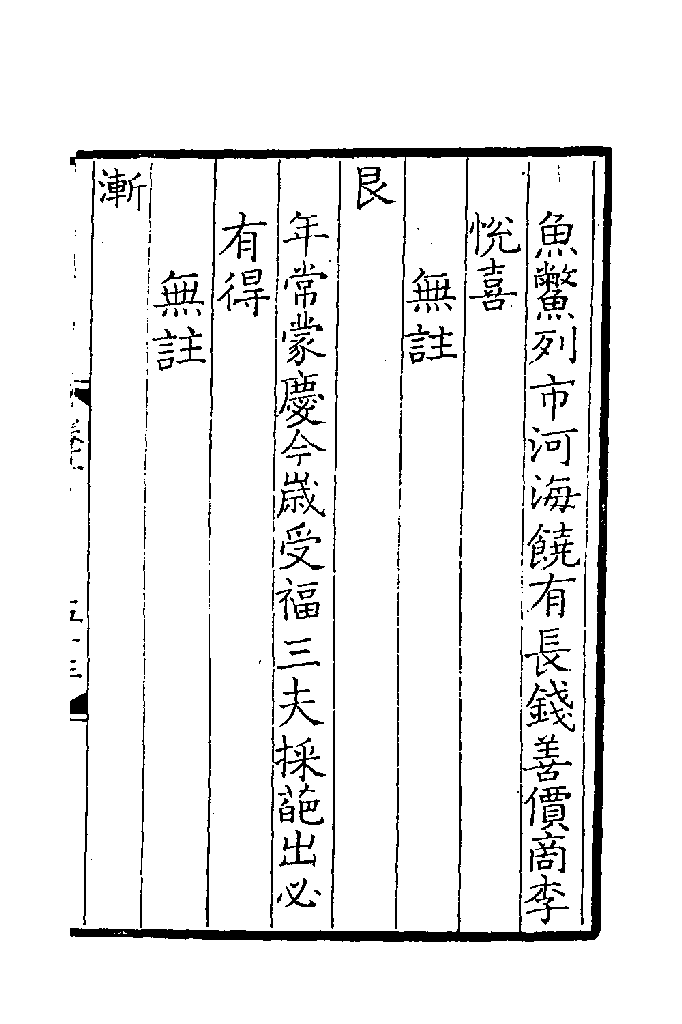 魚鼈列市河海饒有長錢善價商李
悅喜
無註
艮
年常蒙慶今歲受福三夫採葩出必
有得
無註
漸